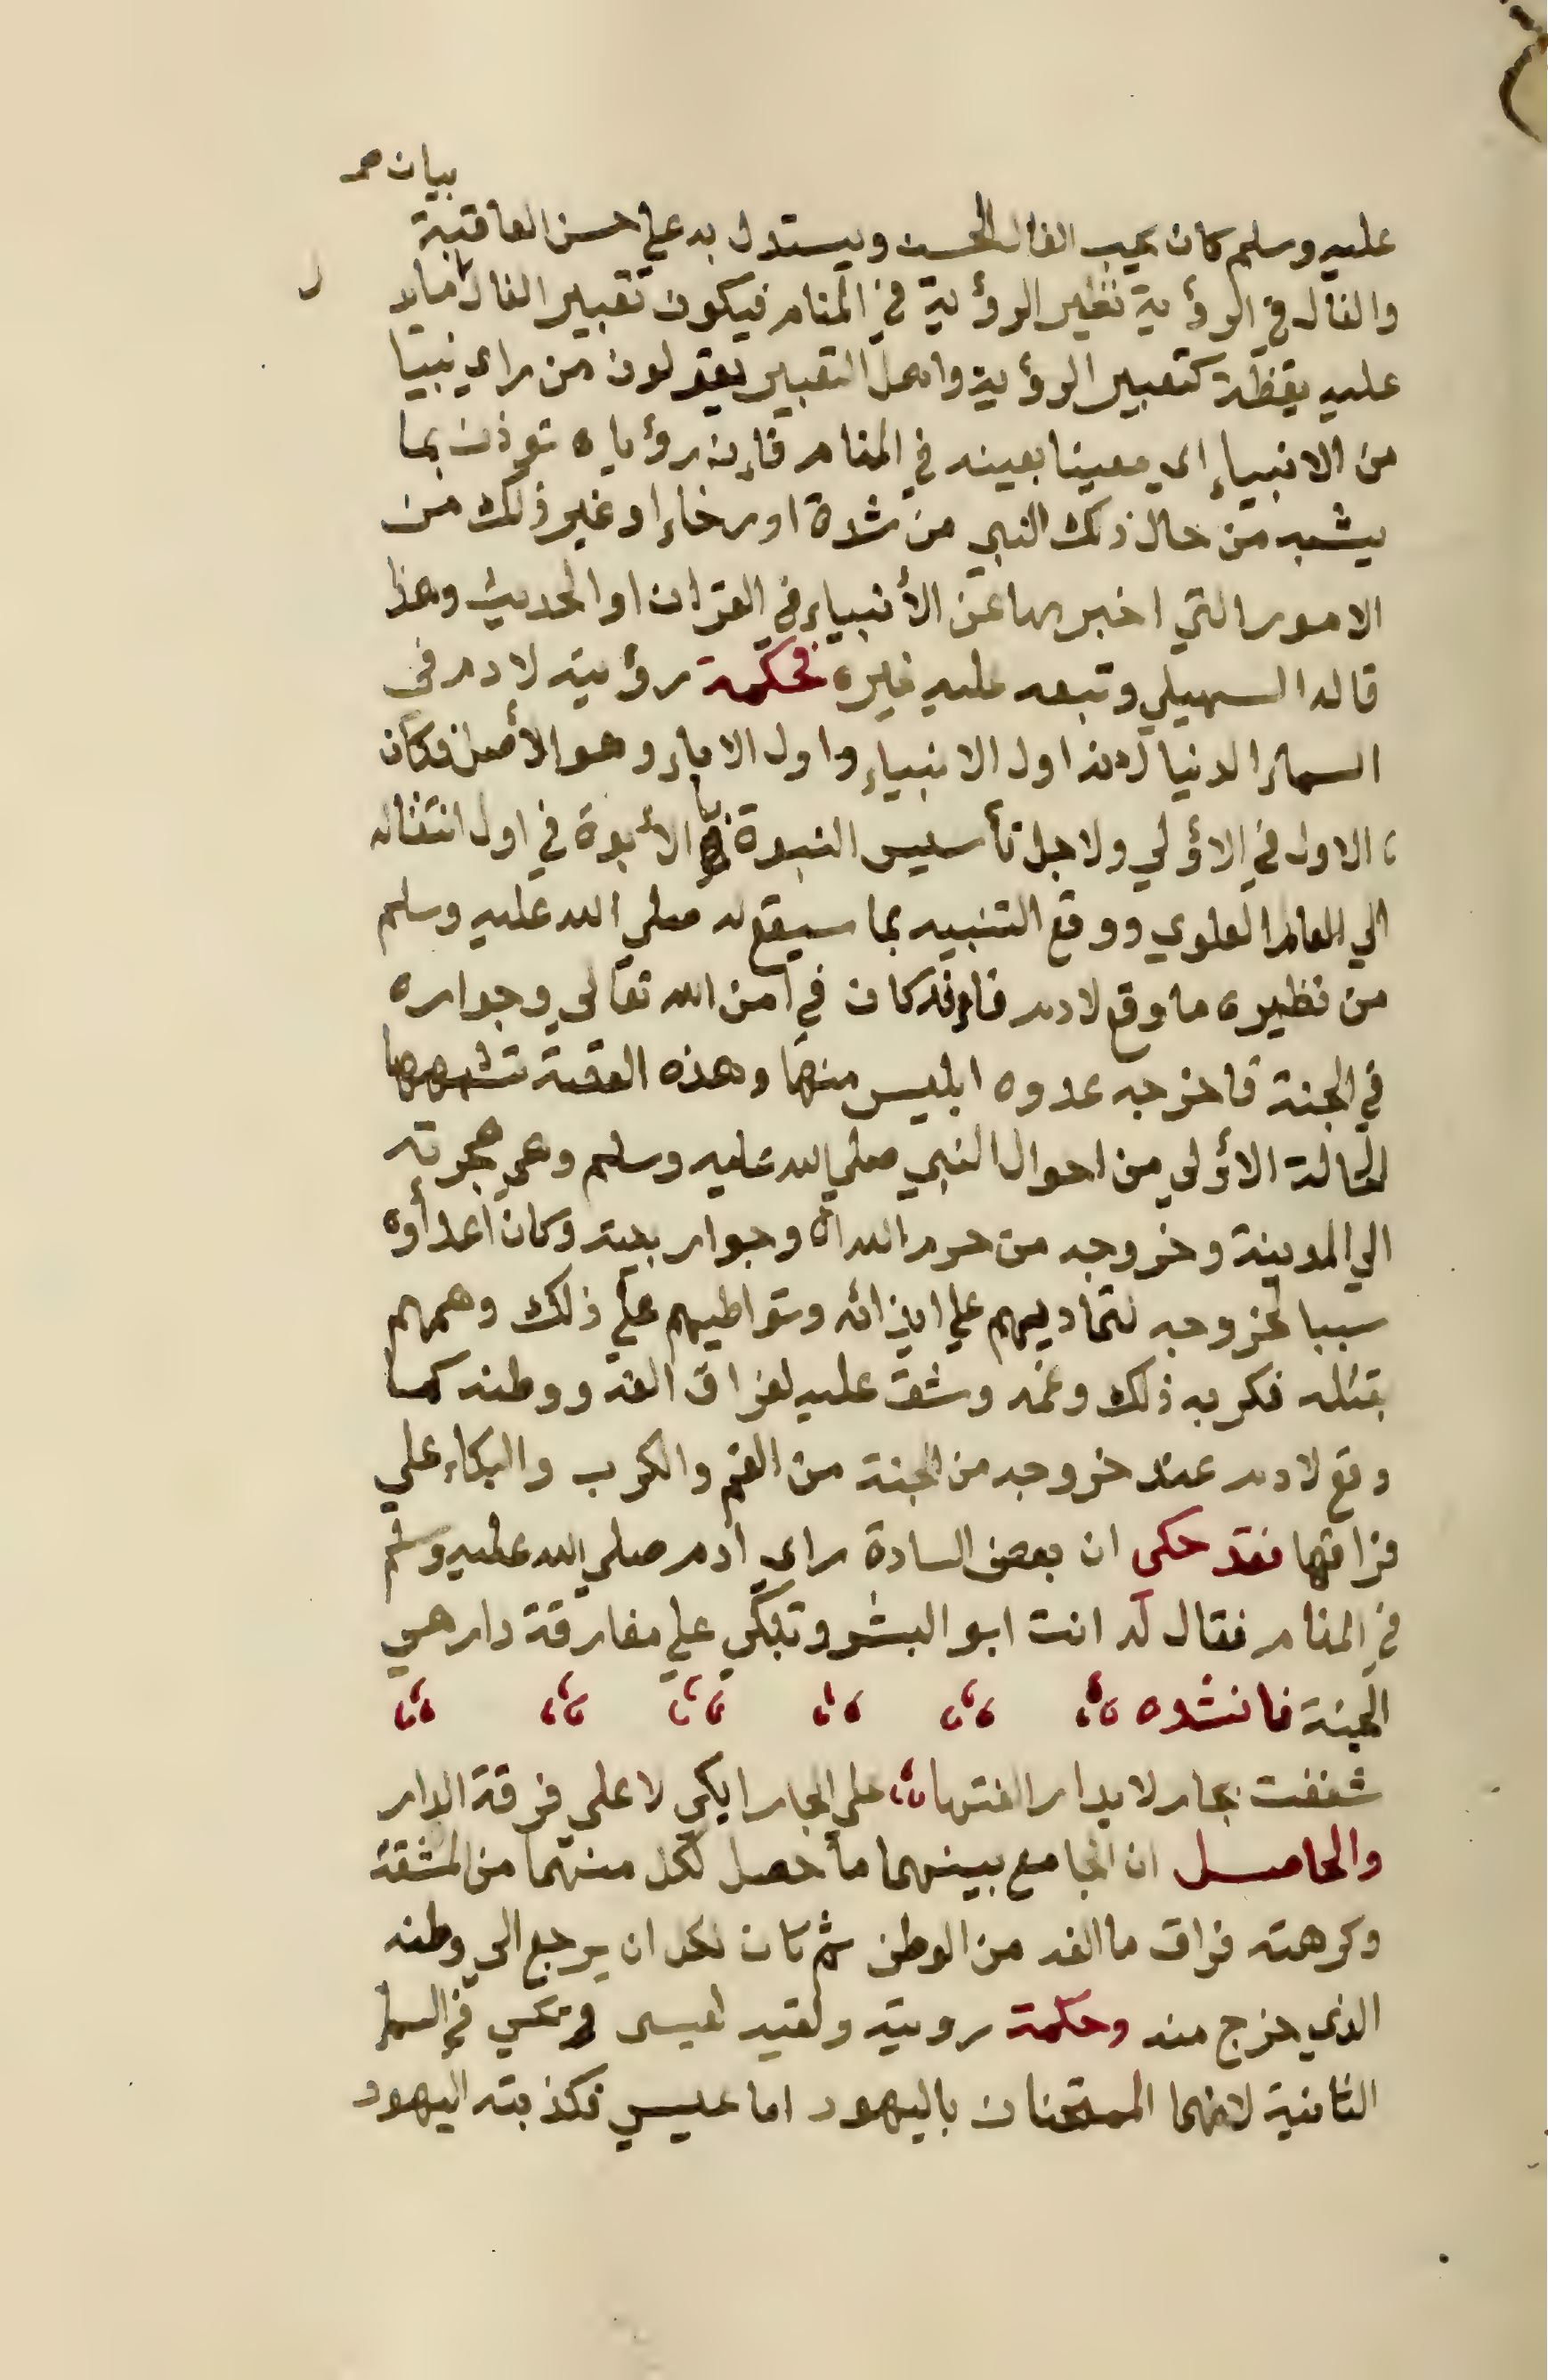 بيان صح
عليه وسلم كان يحب الفال الحسن ويستدل به علي حسن العاقبة
والفال في الرؤية نظير الرؤية في المنام فيكون تعبير الفال مايد
ل
عليه يقظة كتعبير الرؤية واهل التعبير يقولون من راي نبيا
من الانبياء اي معينا بعينه في المنام فإن رؤياه توذن بما
يشبه من حال ذلك النبي من شدة او رخاء او غير ذلك من
الامور التي اخبر بها عن الأنبياء في القران او الحديث وهذا
قاله السهيلي وتبعه عليه غيره فحكمة رؤيته لادم في
السماء الدنيا لانه اول الانبياء واول الاباء وهو الأصل فكان
الاول في الاؤلي ولاجل تأسيس النبوة با الأبوة في اول انتقاله
الي العالم العلوي ووقع التنبيه بما سيقع له صلي الله عليه وسلم
من نظيره ما وقع لادم فإنه كان في امن الله تعالي وجواره
في الجنة فاخرجه عدوه ابليس منها وهذه القصة تشبهها
الحالة الاؤلي من احوال النبي صلي الله عليه وسلم وهي هجرته
الي المدينة وخروجه من حرم الله وجوار بيته وكان اعداؤه
سببا لخروجه لتماديهم علي ايذائه وتواطيهم علي ذلك وهمهم
بقتله فكربه ذلك وغمه وشق عليه لفراق الفه ووطنه كما
وقع لادم عند خروجه من الجنة من الغم والكرب والبكاء علي
فراقها فقد حكى ان بعض السادة راي ادم صلي الله عليه وسلم
في المنام فقال له انت ابو البشر وتبكي علي مفارقة دار هي
الجنة فانشده
شغفت بجار لا بدار الفتها علي الجار ابكي لا علي فرقة الدار
والحاصل ان الجامع بينهما ما حصل لكل منهما من المشقة
وكرهته فراق ما الفه من الوطن ثم كان لكل ان يرجع الي وطنه
الذي خرج منه وحكمة رويته ولقيه لعيسى في السماء
الثانية لانهما الممتحنان باليهود اما عيسي فكذبته اليهود